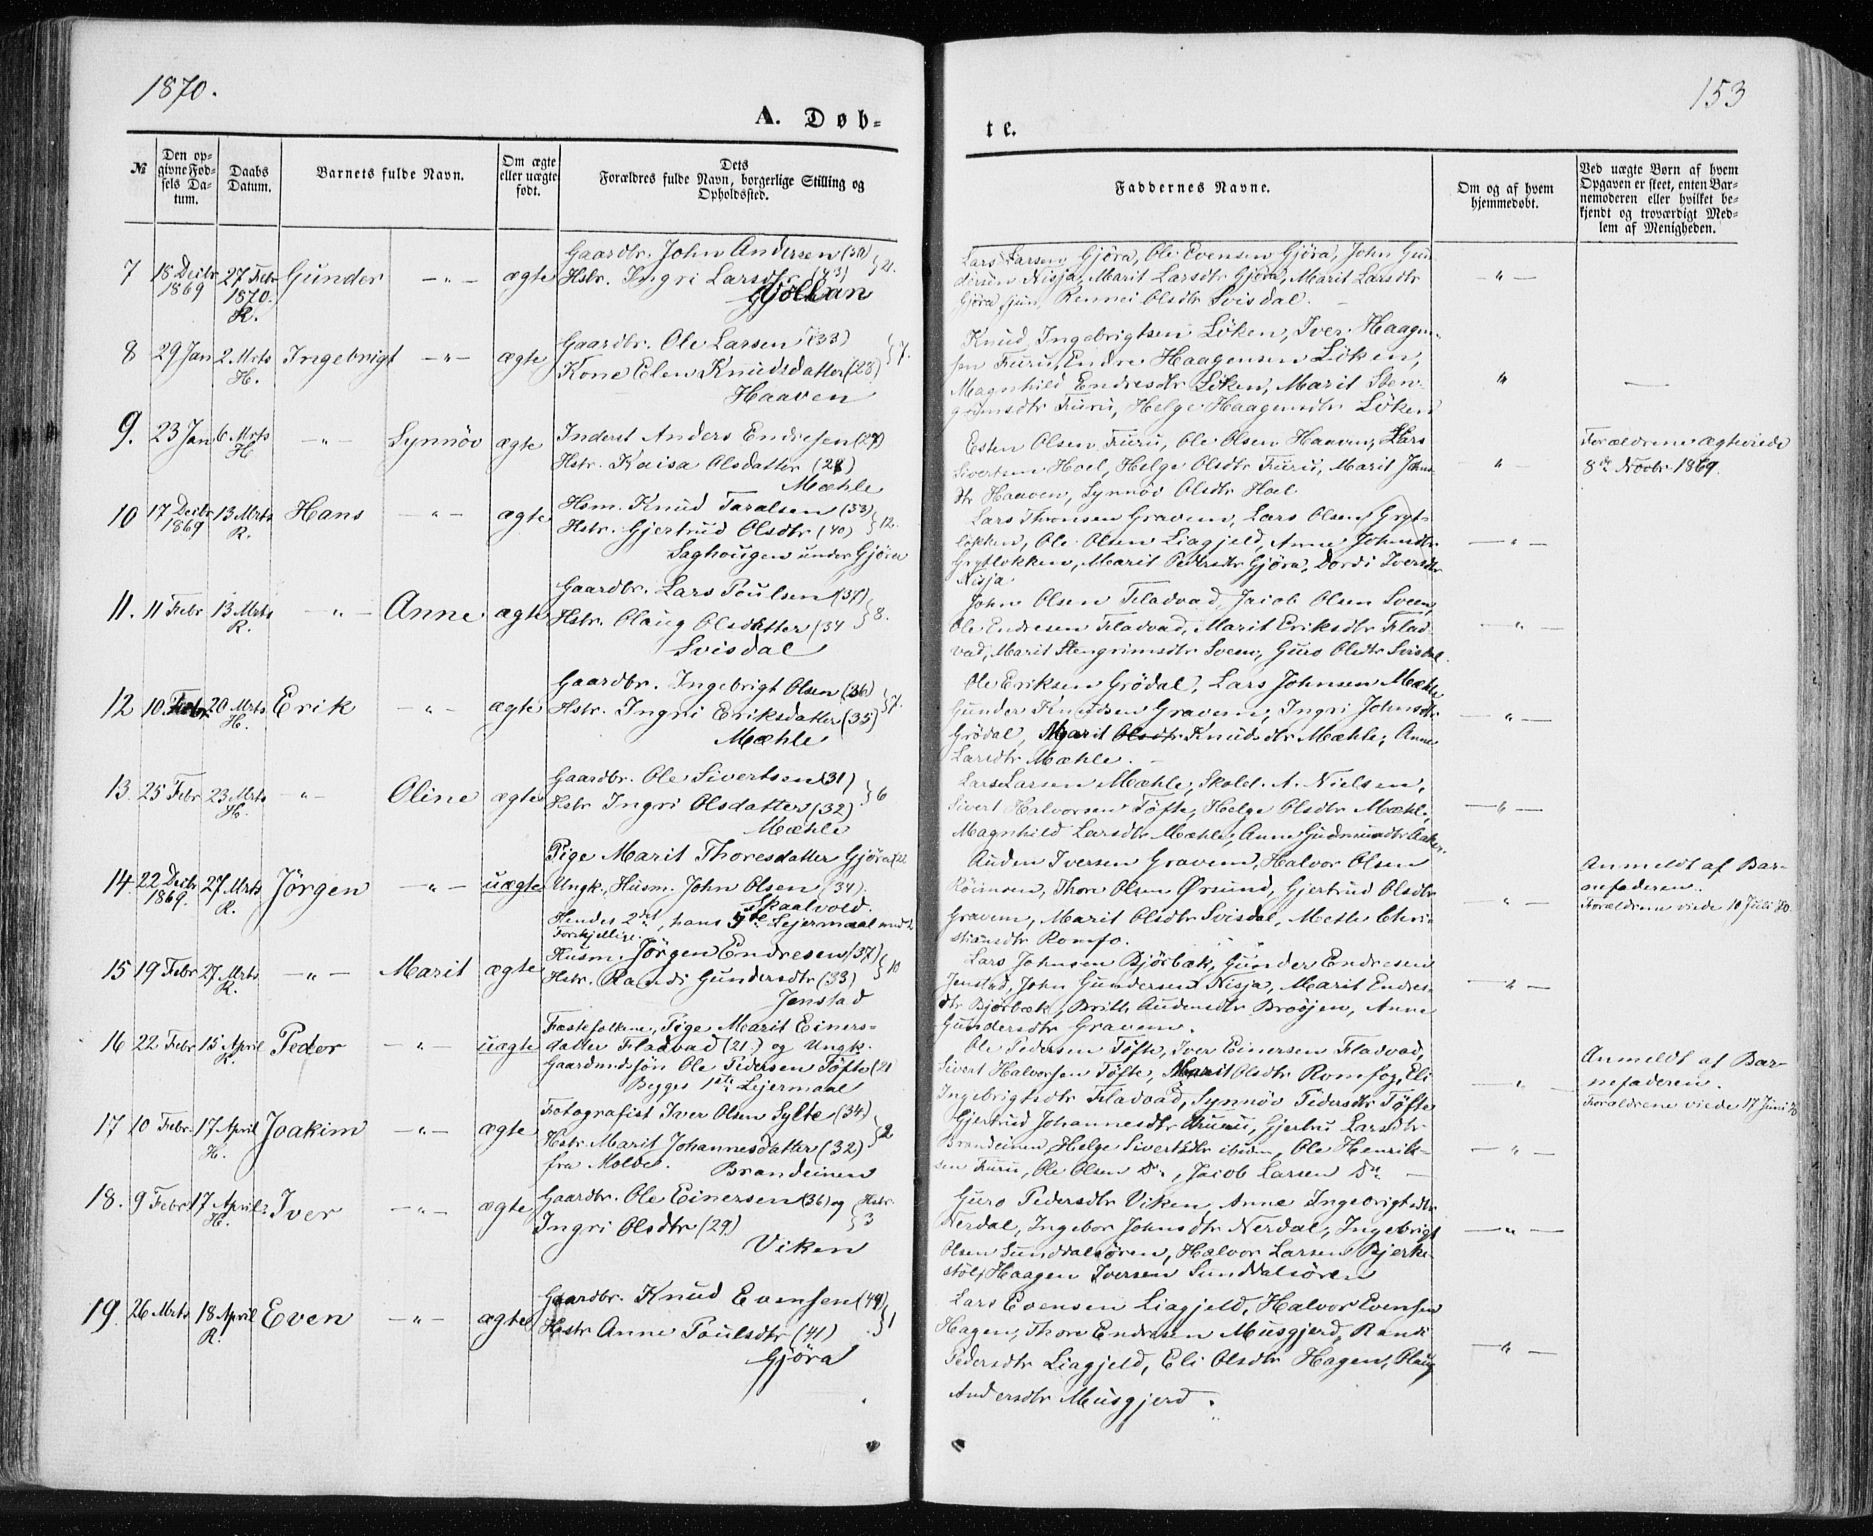 1870.
153
A. Døb-
te.
№
Den op-
givne Fød-
sels Da-
tum.
Daabs
Datum.
Barnets fulde Navn.
Om ægte
eller uægte
født.
Dets
Forældres fulde Navn, borgerlige Stilling og
Opholdssted.
Faddernes Navne.
Om og af hvem
hjemmedøbt.
Ved uægte Børn af hvem
Opgaven er skeet, enten Bar-
nemoderen eller hvilket be-
kjendt og troværdigt Med-
lem af Menigheden.
7 18 Decbr 1869 27 Febr 1870. R. Gunder —"— ægte
Gaardbr. John Andersen
Hstr. Ingri Larsdtr (43)
Gjøllan
Lars Larsen Gjöra, Ole Evensen Gjöra, John Gun
dersen Nisja, Marit Larsdtr Gjöra, Marit Larsdtr
Gjöra, Rennei Olsdtr Svisdal.
—"—
8 29 Jan 2 Mrts H. Ingebrigt —"— ægte
Gaardbr. Ole Larsen (33)
Kone Elen Knudsdatter (23) } 7.
Haaven
Knud Ingebrigtsen Löken, Iver Haagen-
sen Furu, Endre Haagensen Löken,
Magnhild Endresdtr Löken, Marit Sten-
grimsdtr Furu, Helge Haagensdtr Löken
"
—
9. 23 Jan 6 Mrts H —"— Synnöv ægte
Inderst Anders Endresen (27)
Hstr. Kaisa Olsdatter (28)
Mæhle
Esten Olsen Furu, Ole Olsen Haaven, Lars
Sivertsen Hoel, Helge Olsdtr Furu, Marit Johns
dtr Haaven, Synnöv Olsdtr Hoel
"
Forældrene ægteviede
8de Novbr 1869.
10 17 Decbr 1869 13 Mrts R. Hans —"— ægte
Hsm. Knud Taralsen (53)
Hstr. Gjertrud Olsdtr (40) } 12.
Saghougen under Gjöra
Lars Thronsen Gravem, Lars Olsen Gryt-
lökken, Ole Olsen Liagjeld, Anne Johnsdtr
Grytlökken, Marit Pedersdtr Gjöra, Dordi Iversdtr
Nisja.
—"—
11. 11 Febr 13 Mrts R. —"— Anne ægte
Gaardbr. Lars Poulsen (37)
Hstr. Olaug Olsdatter (34 } 8.
Svisdal
John Olsen Fladvad, Jacob Olsen Sveen,
Ole Endresen Fladvad, Marit Eriksdtr Flad-
vad, Marit Stengrimsdtr Sveen, Guro Olsdtr Svisdal.
—"—
12 10 Febr 20 Mrts H. Erik —"— ægte
Gaardbr. Ingebrigt Olsen (36)
Hstr. Ingri Eriksdatter (35) } 7.
Mæhle
Ole Eriksen Grödal, Lars Johnsen Mæhle
Gunder Knudsen Gravem, Ingri Johnsdtr
Grödal, Marit Olsdtr Knudsdtr Mæhle, Anne
Larsdtr Mæhle.
—"—
13 25 Febr 23 Mrts H. —"— Oline ægte
Gaardbr. Ole Sivertsen (31)
Hstr Ingri Olsdatter (32) } 6
Mæhle
Lars Larsen Mæhle, Skold. A. Nielsen,
Sivert Halvorsen Töfte, Helge Olsdtr Mæhle,
Magnhild Larsdtr Mæhle, Anne Gudmundtr
—"—
14 22 Decbr 1869. 27 Mrts R. Jörgen —"— uægte
Pige Marit Thoresdatter Gjöra
Ungk. Husm. John Olsen (34)
Skaalvold.
Hendes 2det, hans 5te Lejermaal med
Forskjellige.
Auden Iversen Gravem, Halvor Olsen
Thore Olsen Ørsund, Gjertrud Olsdtr
Gravem, Marit Olsdtr Svisdal, Mette Chri-
stiansdtr Romfo.
—"—
Anmeldt af Bar-
nefaderen.
Forældrene viede 10 Juli 70.
15 19 Febr 27 Mrts R. —"— Marit ægte
Husm. Jörgen Endresen (37)
Hstr. Randi Gundersdtr (33) } 10
Jenstad
Lars Johnsen Bjørbæk, Gunder Endresen
Jenstad, John Gundersen Nisja, Marit Endres-
dtr Bjørbæk, Brith Audensdtr Anne
Gundersdtr Gravem.
—"—
16 22 Febr 15 April R. Peder —"— uægte
Fæstefolkene, Pige Marit Einers-
datter Fladvad (21.) og Ungk.
Gaardmdssön Ole Pedersen Töfte (21
Begges 1ste Lejermaal
Ole Pedersen Töfte, Iver Einersen Fladvad,
Sivert Halvorsen Töfte, Marit Olsdtr Romfog, Eli
Ingebrigtsdtr Fladvad, Synnöv Pedersdtr Töfte
"
Anmeldt af Bar-
nefaderen.
Forældrene viede 17 Juni 70
17 10 Febr. 17 April H. Joakim —"— ægte
Fotografist Iver Olsen Sylte (34)
Hstr. Marit Johannesdatter (32) } 2
fra Molde. Brandeinen
Gjertrud Johannesdtr Furu, Gjertru Larsdtr
Brandeinen, Helge Sivertsdtr ibidm, Ole Henrik-
sen Furu, Ole Olsen Do, Jacob Larsen Do —
—"—
18. 9 Febr 17 April H. Iver —"— ægte
Gaardbr. Ole Einersen (36) og Hstr.
Ingri Olsdtr (29) } 3
Viken
Guro Pedersdtr Viken, Anne Ingebrigtsdtr
Nerdal, Ingebor Johnsdtr Nerdal, Ingebrigt
Olsen Sunddalsören, Halvor Larsen Bjerke-
stöl, Haagen Iversen Sunddalsören
—"—
19. 26 Mrts 18 April R. Even —"— ægte
Gaardbr. Knud Evensen (49)
Hstr Anne Poulsdtr (41) } 1
Gjöra
Lars Evensen Liagjeld, Halvor Evensen
Hagen, Thore Endresen Musgjerd, Randi
Pedersdtr Liagjeld, Eli Olsdtr Hagen, Olaug
Andersdtr Musgjerd.
—"—